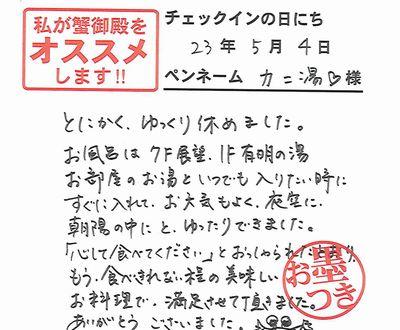 私が蟹御殿を
オススメ
します!!
チェックインの日にち
23年 5月 4日
ペンネーム カニ湯♡様
とにかく、ゆっくり休めました。
お風呂は 7F展望、1F有明の湯
お部屋のお湯といつでも入りたい時に
すぐに入れて、お天気もよく、夜空に、
朝陽の中にと、ゆったりできました。
「心して食べてください」とおっしゃられたとおり、
もう、食べきれない程の美味しい
お料理で、満足させて頂きました。
ありがとうございました。
お墨つき